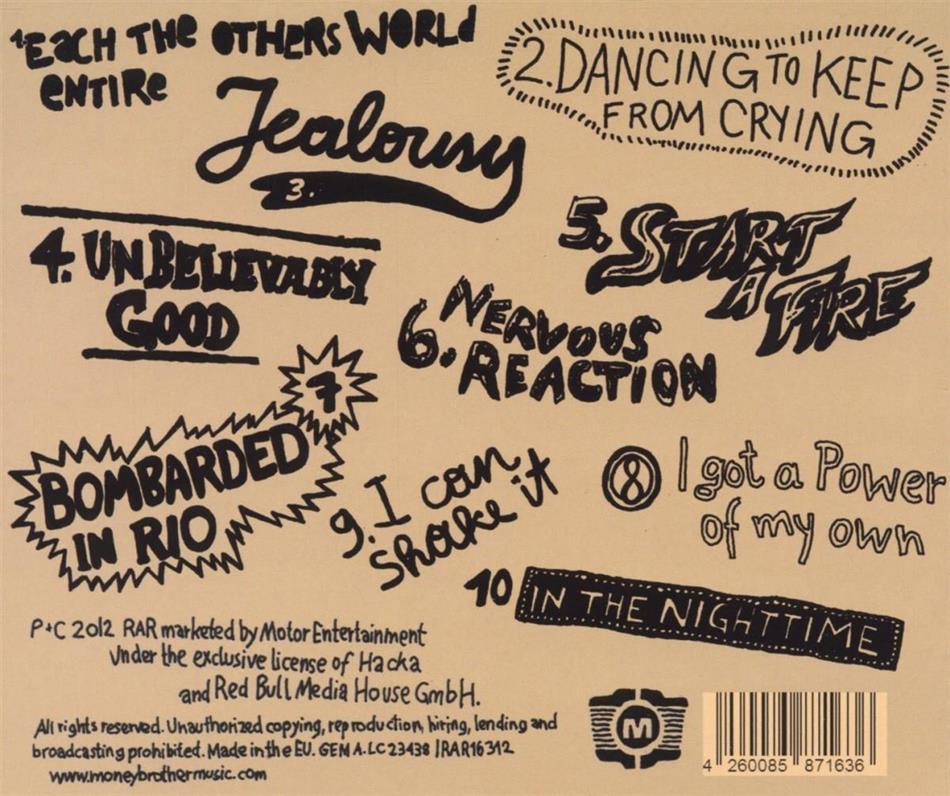 1. EACH THE OTHERS WORLD
ENTIRE
2. DANCING TO KEEP
FROM CRYING
Jealousy
3.
4. UNBELIEVABLY
GOOD
5. START
A FIRE
6. NERVOUS
REACTION
7
BOMBARDED
IN RIO
8 I got a Power
of my own
9. I can
shake it
10 IN THE NIGHTTIME
P+C 2012 RAR marketed by Motor Entertainment
Under the exclusive license of Hacka
and Red Bull Media House GmbH.
All rights reserved. Unauthorized copying, reproduction, hiring, lending and
broadcasting prohibited. Made in the EU. GEMA. LC 23438 / RAR16312
www.moneybrothermusic.com
M
4 260085 871636